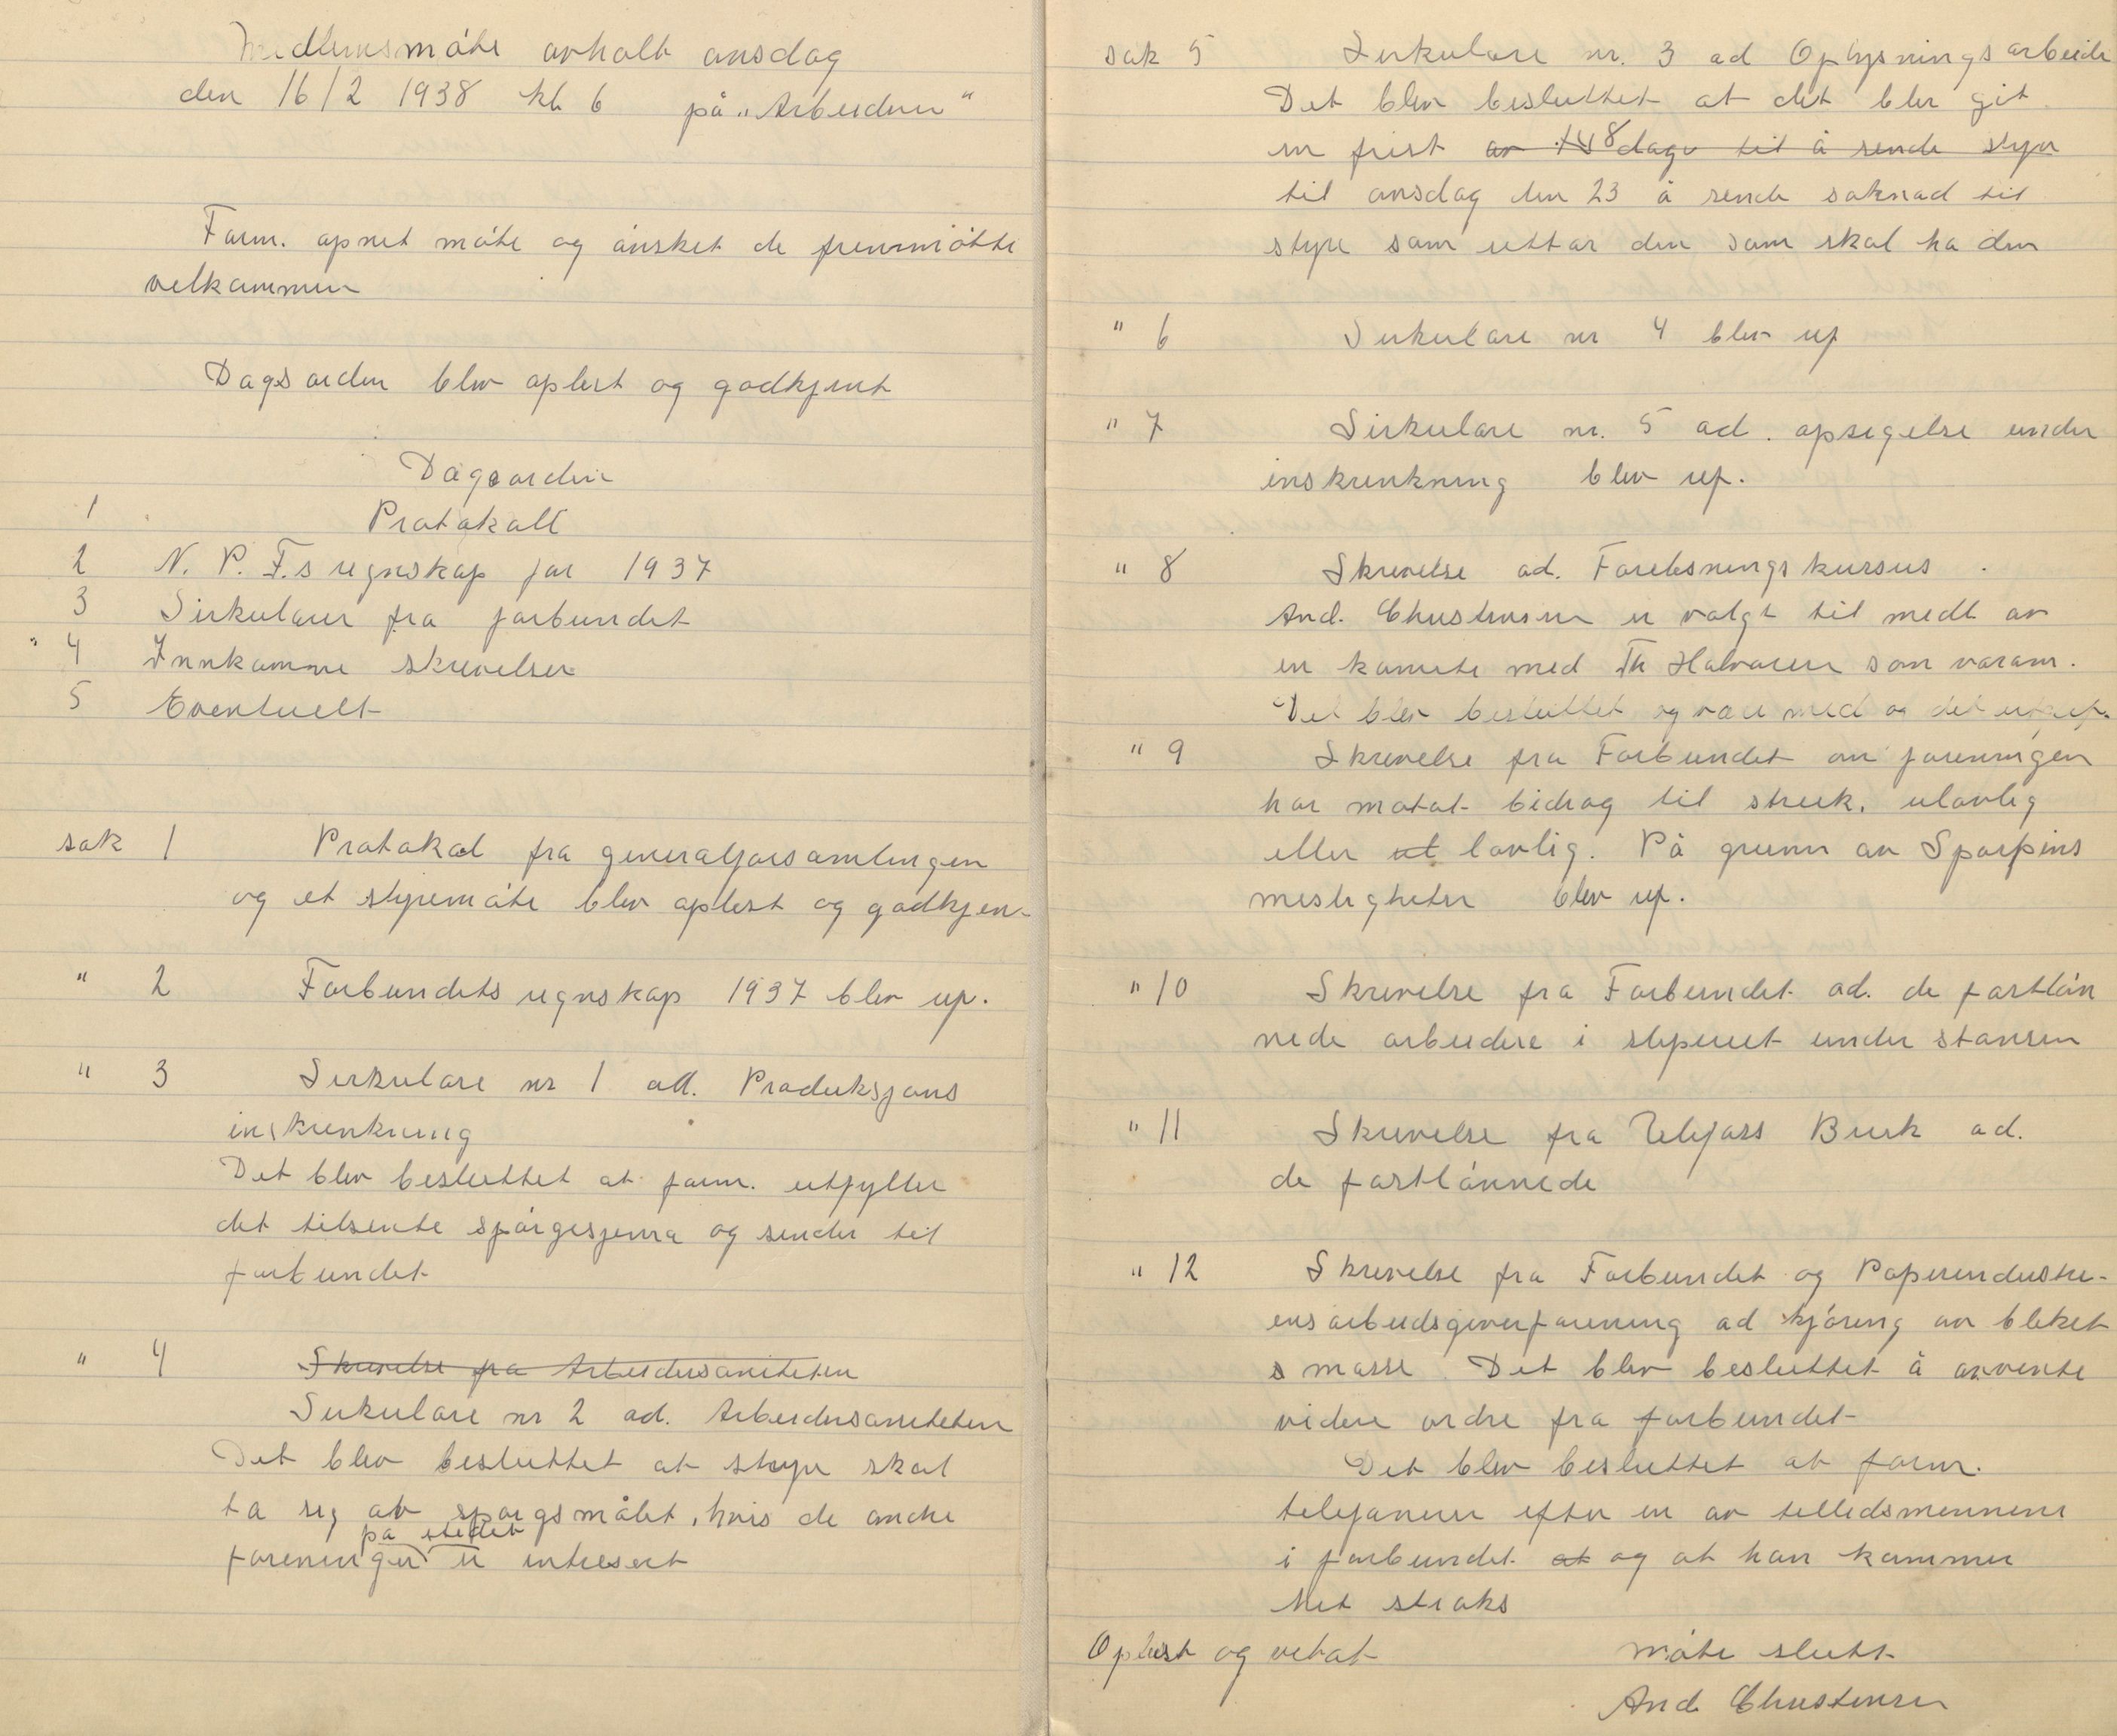 Medlemsmøte avholt onsdag
den 16/2 1938 kl 6 på „Arbeideren“
Form. åpnet møte og ønsket de fremmøtte
velkommen
Dagsorden blev oplest og godkjent
Dagsorden
1 Protokoll
2 N. P. F.s regnskap for 1937
3 Sirkulærer fra forbundet
" 4 Innkomne skrevelser
5 Eventuelt
sak 1 Protokol fra generalforsamlingen
og et styremøte blev oplest og godkjen-
" 2 Forbundets regnskap 1937 blev ref.
" 3 Sirkulære nr 1 ad. Produksjons
inskrenkning
Det blev besluttet at form. utfyller
det tilsente spørgesjema og sender til
forbundet
" 4 Skrevelse fra Arbeidersaniteten
Sirkulære nr 2 ad. Arbeidersaniteten
Det blev besluttet at styre skal
ta sig av spørgsmålet, hvis de andre
på stedet
foreninger er intresert
sak 5 Sirkulære nr. 3 ad Oplysningsarbeide
Det blev besluttet at det blev git
en frist av 8 dager til å sende styre
til onsdag den 23 å sende søknad til
styre som uttar den som skal ha den
" 6 Sirkulære nr 4 blev ref
" 7 Sirkulære nr. 5 ad. opsigelse under
inskrenkning blev ref.
" 8 Skrevelse ad. Forelesningskursus.
And. Christensen er valgt til medl av
en komite med Th Halvorsen som varam.
Det blev besluttet og være med og det
" 9 Skrevelse fra Forbundet om foreningen
har motat bidrag til streik, ulovlig
eller ul lovlig. På grunn av
blev ref.
" 10 Skrevelse fra Forbundet ad. de fastløn
nede arbeidere i sliperiet under stansen
" 11 Skrevelse fra Ulefoss Bruk ad.
de fastlønnede
" 12 Skrevelse fra Forbundet og Papirindustri-
ens arbeidsgiverforening ad kjøring av bleket
s masse. Det blev besluttet å avvente
videre ordre fra forbundet
Det blev besluttet at form.
telefonerer efter en av tellidsmennene
i forbundet at og at han kommer
straks
Oplest og vetat møte slutt
And Christensen